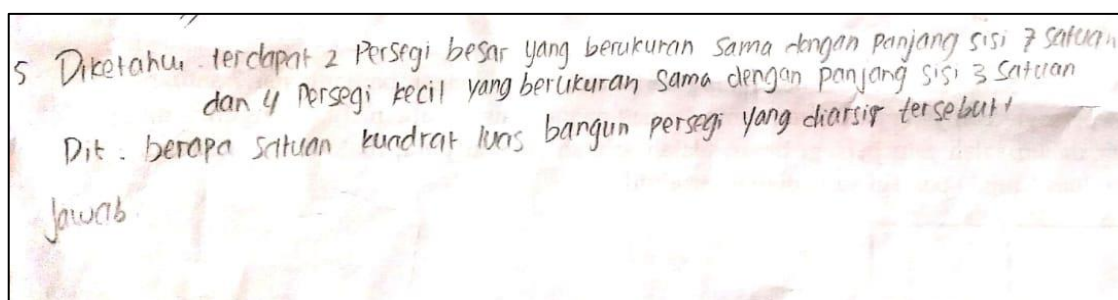 5 Diketahui terdapat 2 Persegi besar yang berukuran sama dengan panjang sisi 7 satuan
dan 4 Persegi kecil yang berukuran sama dengan panjang sisi 3 satuan
Dit. berapa satuan kuadrat luas bangun persegi yang diarsir tersebut!
Jawab